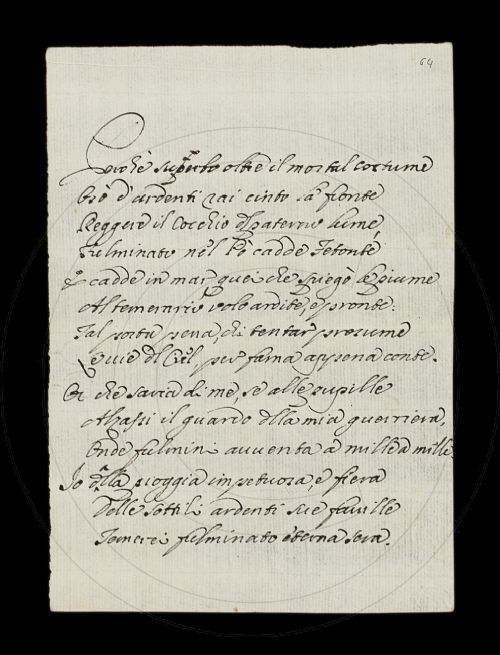 64
Perchè superbo oltre il mortal costume
Osò d'ardenti rai cinto la fronte
Reggere il Cocchio del paterno lume
Fulminato nel Pò cadde Fetonte
E cadde in mar quei che spiegò le piume
Al temerario volo ardite, e pronte:
Tal porta pena, chi tentar presume
Le vie del Ciel per fama appena conte.
Or che saria di me, se alle pupille
Alzassi il guardo della mia guerriera,
Onde fulmini avventa a mille a mille.
Io della pioggia impetuosa, e fiera
Delle sottili ardenti sue faville
Temerei fulminato eterna sera.